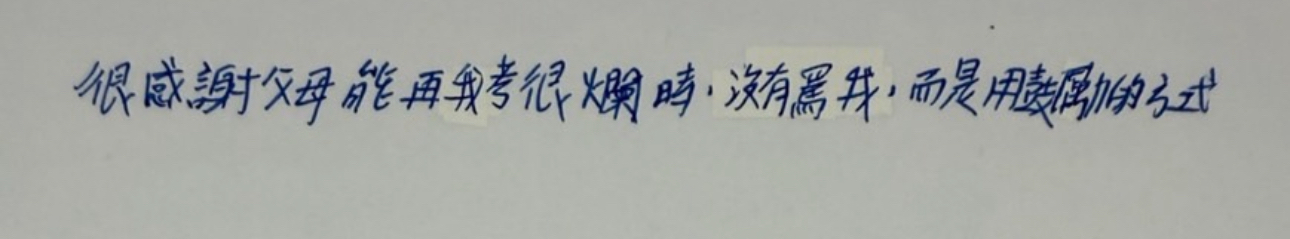 很感謝父母能再我考很爛時，沒有罵我，而是用鼓勵的方式